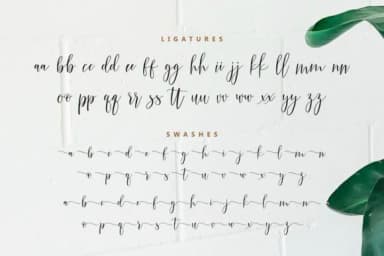 LIGATURES
aa bb cc dd ee ff gg hh ii jj kk ll mm nn
oo pp qq rr ss tt uu vv ww xx yy zz
SWASHES
a b c d e f g h i j k l m n
o p q r s t u v w x y z
a b c d e f g h i j k l m n
o p q r s t u v w x y z